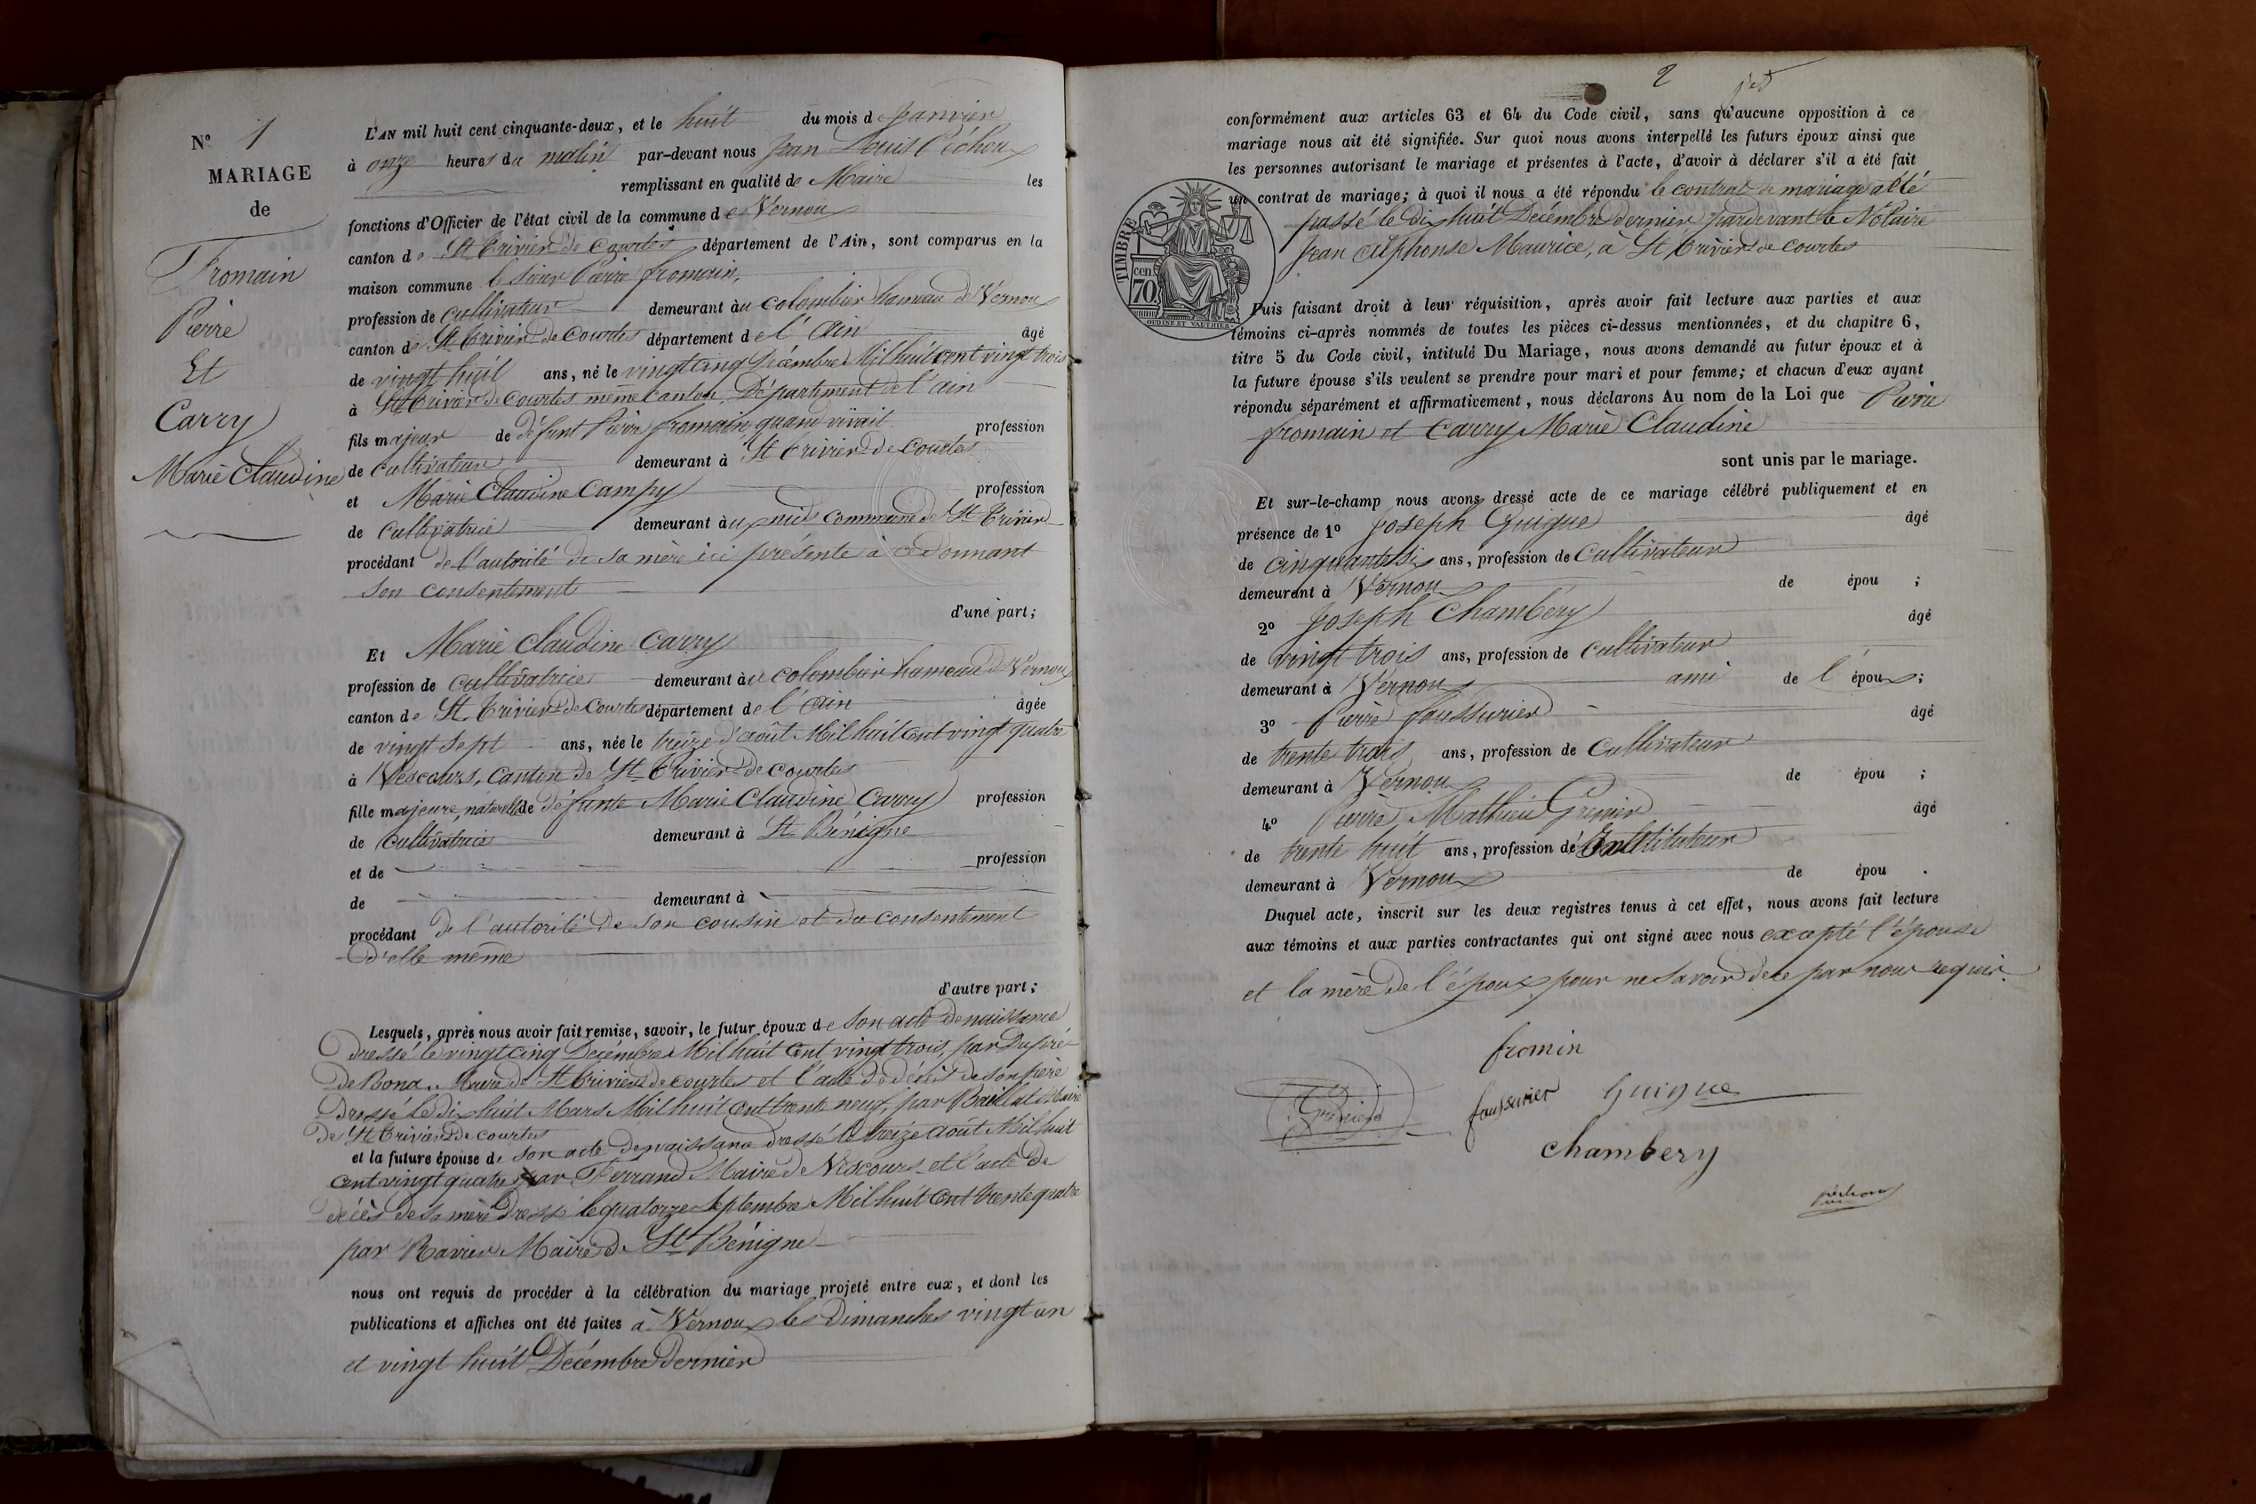 N° 1
MARIAGE
de
Fromain
Pierre
Et
Carry
Marie Claudine
L'AN mil huit cent cinquante-deux, et le huit du mois d Janvier
à onze heures du matin par-devant nous Jean Louis Péchoux
remplissant en qualité de Maire les
fonctions d'Officier de l'état civil de la commune de Vernoux
canton de St Trivier de Courtes, département de l'Ain, sont comparus en la
maison commune le sieur Pierre fromain,
profession de cultivateur demeurant au colombier hameau de Vernoux
canton de St Trivier de Courtes département de l'Ain âgé
de vingt huit ans, né le vingt cinq Décembre Mil huit cent vingt trois
à St Trivier de Courtes même canton, Département de l'ain
fils majeur de défunt Pierre fromain, quand vivait profession
de cultivateur demeurant à St Trivier de Courtes
et Marie Claudine Campy profession
de cultivatrice demeurant au commune de St Trivier
procédant de l'autorité de sa mère ici présente à ce donnant
son consentement
d'une part;
Et Marie Claudine Carry
profession de cultivatrice demeurant au colombier hameau de Vernoux
canton de St Trivier de Courtes département de l'Ain âgée
de vingt sept ans, née le treize d'août Mil huit cent vingt quatre
à Vescours, canton de St Trivier de courtes
fille majeure, naturelle de défunte Marie Claudine Carry profession
de cultivatrice demeurant à St Bénigne
et de profession
de demeurant à
procédant de l'autorité de son cousin et du consentement
d'elle même
d'autre part;
Lesquels, après nous avoir fait remise, savoir, le futur époux de son acte de naissance
dressé le vingt cinq Décembre Mil huit cent vingt trois, par Dupré
de Bona, Maire de St Trivier de courtes et l'acte de décès de son père
Dressé le dix huit Mars Mil huit cent trente neuf, par Maire
de St Trivier de courtes
et la future épouse de son acte de naissance dressé le treize août Mil huit
cent vingt quatre par Ferrand Maire de Vescours et l'acte de
décès de sa mère Dressé le quatorze Septembre Mil huit cent trente quatre
par Ravier Maire de St Bénigne
nous ont requis de procéder à la célébration du mariage projeté entre eux, et dont les
publications et affiches ont été faites à Vernoux les Dimanches vingt un
et vingt huit Décembre dernier
2
conformément aux articles 63 et 64 du Code civil, sans qu'aucune opposition à ce
mariage nous ait été signifiée. Sur quoi nous avons interpellé les futurs époux ainsi que
les personnes autorisant le mariage et présentes à l'acte, d'avoir à déclarer s'il a été fait
un contrat de mariage; à quoi il nous a été répondu le contrat de mariage a été
passé le dix huit Décembre dernier, pardevant le Notaire
Jean Alphonse Maurice, à St Trivier de Courtes
TIMBRE
cen.
70
OUDINÉ ET VAUTHIER
Puis faisant droit à leur réquisition, après avoir fait lecture aux parties et aux
témoins ci-après nommés de toutes les pièces ci-dessus mentionnées, et du chapitre 6,
titre 5 du Code civil, intitulé Du Mariage, nous avons demandé au futur époux et à
la future épouse s'ils veulent se prendre pour mari et pour femme; et chacun d'eux ayant
répondu séparément et affirmativement, nous déclarons Au nom de la Loi que Pierre
fromain et Carry Marie Claudine
sont unis par le mariage.
Et sur-le-champ nous avons dressé acte de ce mariage célébré publiquement et en
présence de 1° Joseph Guigue âgé
de cinquante six ans, profession de Cultivateur
demeurant à Vernoux de épou ;
2° Joseph Chambery âgé
de vingt trois ans, profession de cultivateur
demeurant à Vernoux ami de l'époux;
3° Pierre faussurier âgé
de trente trois ans, profession de Cultivateur
demeurant à Vernoux de épou ;
4° Pierre Mathieu Grenier âgé
de trente huit ans, profession d'Instituteur
demeurant à Vernoux de épou .
Duquel acte, inscrit sur les deux registres tenus à cet effet, nous avons fait lecture
aux témoins et aux parties contractantes qui ont signé avec nous excepté l'épouse
et la mère de l'époux pour ne savoir de ce par nous requis.
fromin
Grenier
faussurier
Guigue
Chambery
péchoux